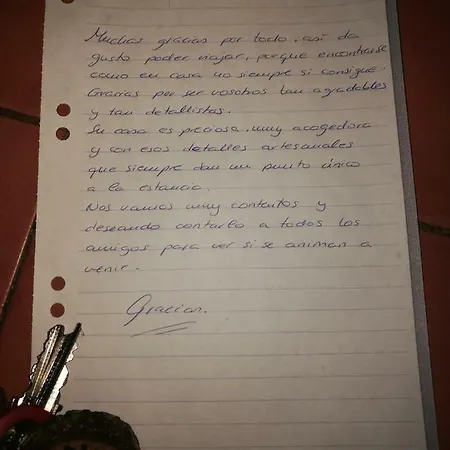 Muchas gracias por todo, así da
gusto poder viajar, porque encontrarse
como en casa no siempre si consigue.
Gracias por ser vosotros tan agradables
y tan detallistas.
Su casa es preciosa, muy acogedora
y con esos detalles artesanales
que siempre dan un punto único
a la estancia.
Nos vamos muy contentos y
deseando contarlo a todos los
amigos para ver si se animan a
venir.
Gracias.